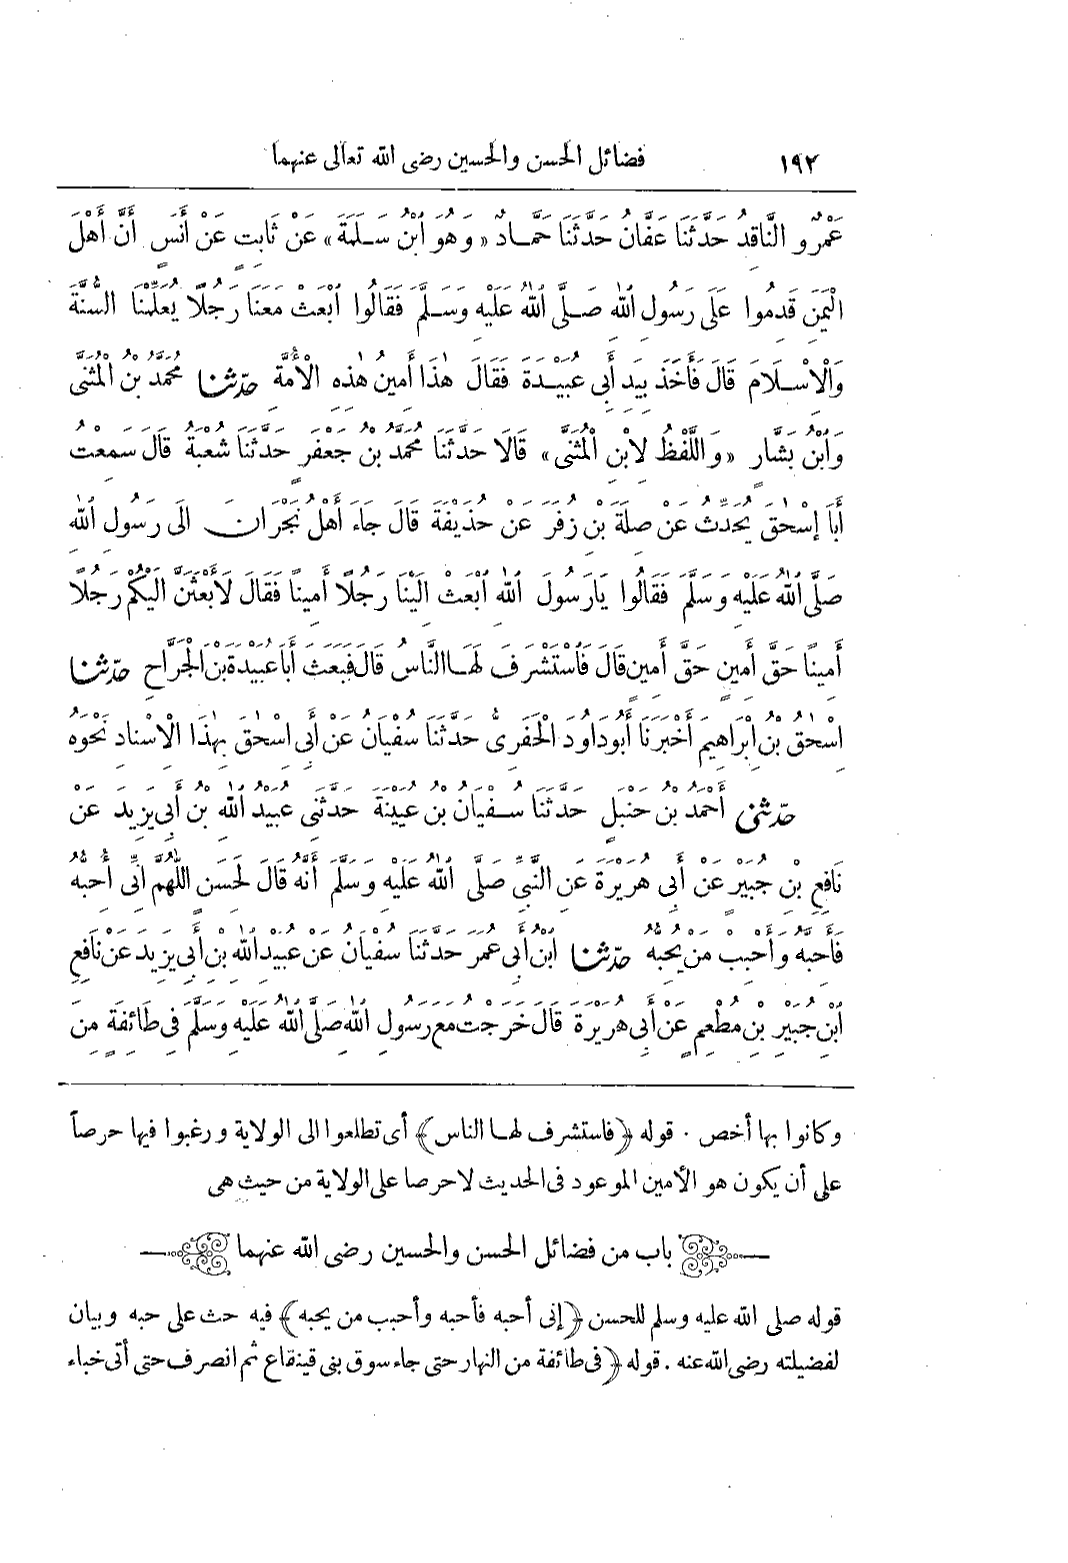 ١٩٢ فضائل الحسن والحسين رضى الله تعالى عنهما
عَمْرٌو النَّاقِدُ حَدَّثَنَا عَفَّانُ حَدَّثَنَا حَمَّادٌ «وَهُوَ ابْنُ سَلَمَةَ» عَنْ ثَابِتٍ عَنْ أَنَسٍ أَنَّ أَهْلَ
الْيَمَنِ قَدِمُوا عَلَى رَسُولِ اللهِ صَلَّى اللهُ عَلَيْهِ وَسَلَّمَ فَقَالُوا ابْعَثْ مَعَنَا رَجُلًا يُعَلِّمْنَا السُّنَّةَ
وَالْإِسْلَامَ قَالَ فَأَخَذَ بِيَدِ أَبِى عُبَيْدَةَ فَقَالَ هٰذَا أَمِينُ هٰذِهِ الْأُمَّةِ حَدَّثَنَا مُحَمَّدُ بْنُ الْمُثَنَّى
وَابْنُ بَشَّارٍ «وَاللَّفْظُ لِابْنِ الْمُثَنَّى» قَالَا حَدَّثَنَا مُحَمَّدُ بْنُ جَعْفَرٍ حَدَّثَنَا شُعْبَةُ قَالَ سَمِعْتُ
أَبَا إِسْحٰقَ يُحَدِّثُ عَنْ صِلَةَ بْنِ زُفَرَ عَنْ حُذَيْفَةَ قَالَ جَاءَ أَهْلُ نَجْرَانَ الَى رَسُولِ اللهِ
صَلَّى اللهُ عَلَيْهِ وَسَلَّمَ فَقَالُوا يَارَسُولَ اللهِ ابْعَثْ الَيْنَا رَجُلًا أَمِينًا فَقَالَ لَأَبْعَثَنَّ الَيْكُمْ رَجُلًا
أَمِينًا حَقَّ أَمِينٍ حَقَّ أَمِينٍ قَالَ فَاسْتَشْرَفَ لَهَا النَّاسُ قَالَ فَبَعَثَ أَبَا عُبَيْدَةَ بْنَ الْجَرَّاحِ حَدَّثَنَا
اِسْحٰقُ بْنُ اِبْرَاهِيمَ أَخْبَرَنَا أَبُو دَاوُدَ الْحَفَرِىُّ حَدَّثَنَا سُفْيَانُ عَنْ أَبِى اِسْحٰقَ بِهٰذَا الْاِسْنَادِ نَحْوَهُ
حَدَّثَنِى أَحْمَدُ بْنُ حَنْبَلٍ حَدَّثَنَا سُفْيَانُ بْنُ عُيَيْنَةَ حَدَّثَنِى عُبَيْدُ اللهِ بْنُ أَبِى يَزِيدَ عَنْ
نَافِعِ بْنِ جُبَيْرٍ عَنْ أَبِى هُرَيْرَةَ عَنِ النَّبِىِّ صَلَّى اللهُ عَلَيْهِ وَسَلَّمَ أَنَّهُ قَالَ لِحَسَنٍ اللّٰهُمَّ اِنِّى أُحِبُّهُ
فَأَحِبَّهُ وَأَحْبِبْ مَنْ يُحِبُّهُ حَدَّثَنَا ابْنُ أَبِى عُمَرَ حَدَّثَنَا سُفْيَانُ عَنْ عُبَيْدِ اللهِ بْنِ أَبِى يَزِيدَ عَنْ نَافِعِ
ابْنِ جُبَيْرِ بْنِ مُطْعِمٍ عَنْ أَبِى هُرَيْرَةَ قَالَ خَرَجْتُ مَعَ رَسُولِ اللهِ صَلَّى اللهُ عَلَيْهِ وَسَلَّمَ فِى طَائِفَةٍ مِنَ
وكانوا بها أخص . قوله ﴿فاستشرف لها الناس﴾ أى تطلعوا الى الولاية ورغبوا فيها حرصاً
على أن يكون هو الأمين الموعود فى الحديث لا حرصا على الولاية من حيث هى
باب من فضائل الحسن والحسين رضى الله عنهما
قوله صلى الله عليه وسلم للحسن ﴿إنى أحبه فأحبه وأحبب من يحبه﴾ فيه حث على حبه وبيان
لفضيلته رضى الله عنه . قوله ﴿فى طائفة من النهار حتى جاء سوق بنى قينقاع ثم انصرف حتى أتى خباء